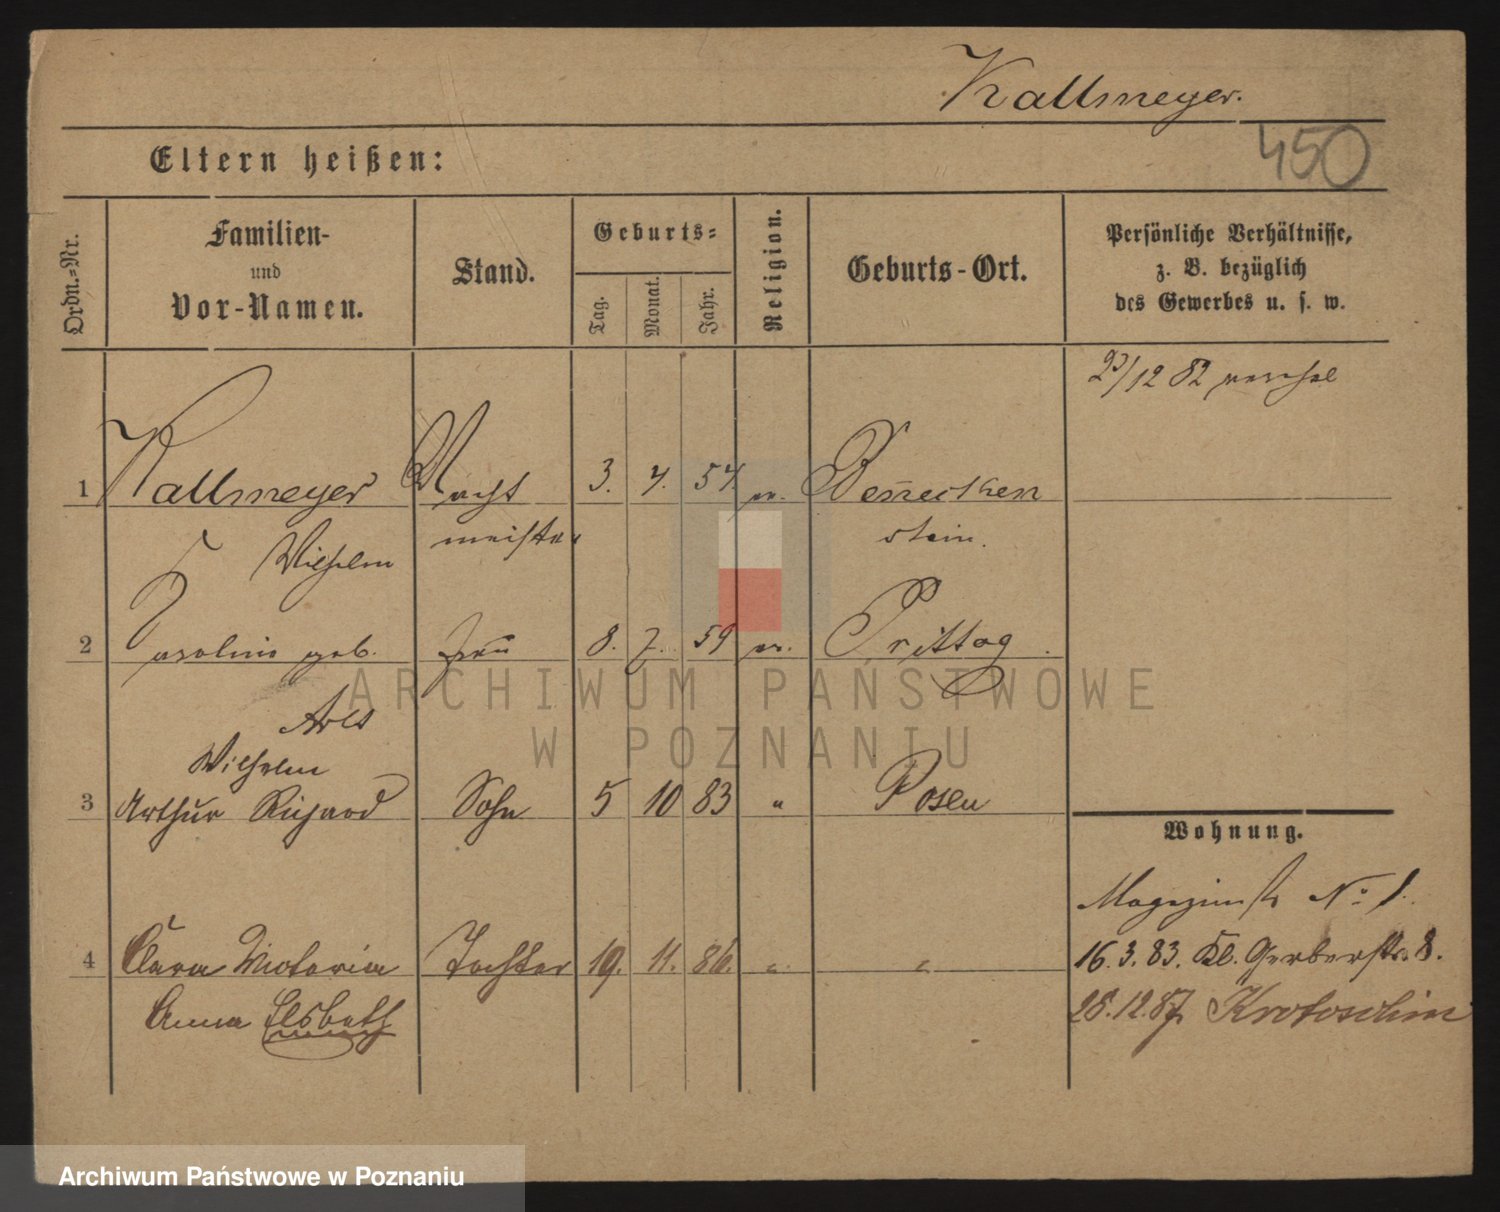 Kallmeyer.
450
Eltern heißen:
Ordn.-Nr.
Familien-
und
Vor-Namen.
Stand.
Geburts-
Tag.
Monat.
Jahr.
Religion.
Geburts-Ort.
Persönliche Verhältnisse,
z. B. bezüglich
des Gewerbes u. s. w.
23/12 82
1 Kallmeyer Wacht 3. 4. 54. ev. Bennecken
Wilhelm meister stein.
2 geb. Frau 8. 7. 59 ev. Prittag.
Arlt
Wilhelm
3 Arthur Richard Sohn 5 10 83 " Posen
4 Clara Victoria Tochter 19. 11. 86. " "
Anna Elsbeth
Wohnung.
Magazinstr No 1.
16. 3. 83. Kl. Gerberstr. 8.
28. 12. 87 Krotoschin
ARCHIWUM PAŃSTWOWE
W POZNANIU
Archiwum Państwowe w Poznaniu